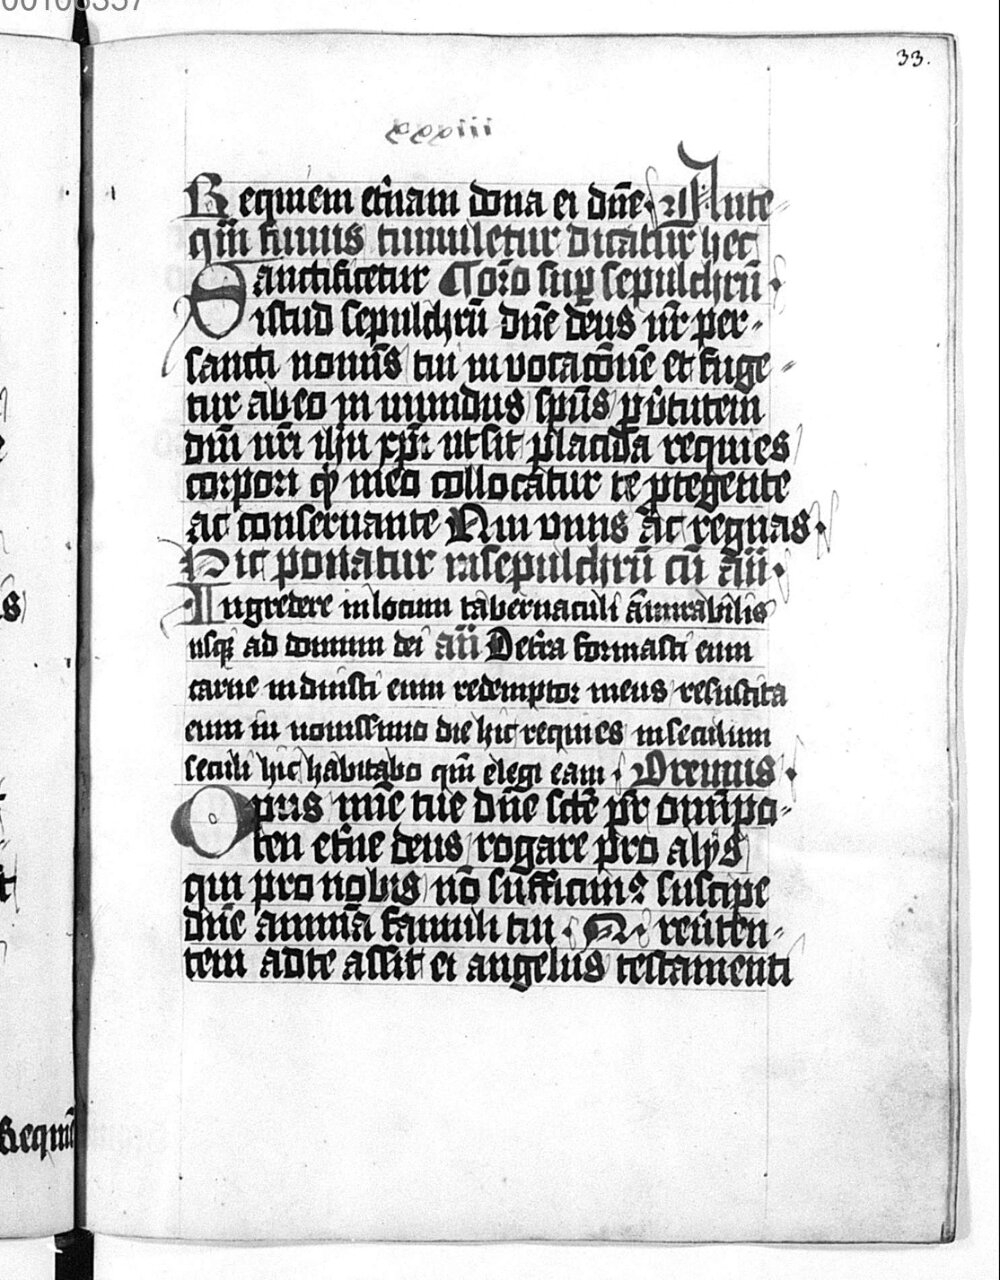 00106357
33.
xxxiii
Requiem et'nam dona ei dn̄e Ante
qm̄ funus tumuletur dicatur hec
Sanctificetur Coro suꝑ sepulchrū
istud sepulchrū dn̄e deus nr̄ per
sancti nomīs tui invocacōnē et fuge
tur ab eo in mundus spūs ꝑ v̄tutem
dm̄ nr̄i ihū xp̄i ut sit placida requies
corpori qꝫ meo collocatur te ꝓtegente
ac conseruante Qui viuis ac regnas
Hic ponatur in sepulchrū cū añ
Ingredere in locum tabernaculi am̄irabilis
usqꝫ ad domum dei añ De terra formasti eum
carne induisti eum redemptor meus resuscita
eum in nouissimo die hic requies in seculum
seculi hic habitabo qm̄ elegi eam Oremus
Opus mīe tue dn̄e sctē pr̄ omīpo
ten et'ne deus rogare pro alijs
qui pro nobis nō sufficim⁹ suscipe
dn̄e animā famuli tui N reūten
tem ad te assit ei angelus testamenti
Requiē